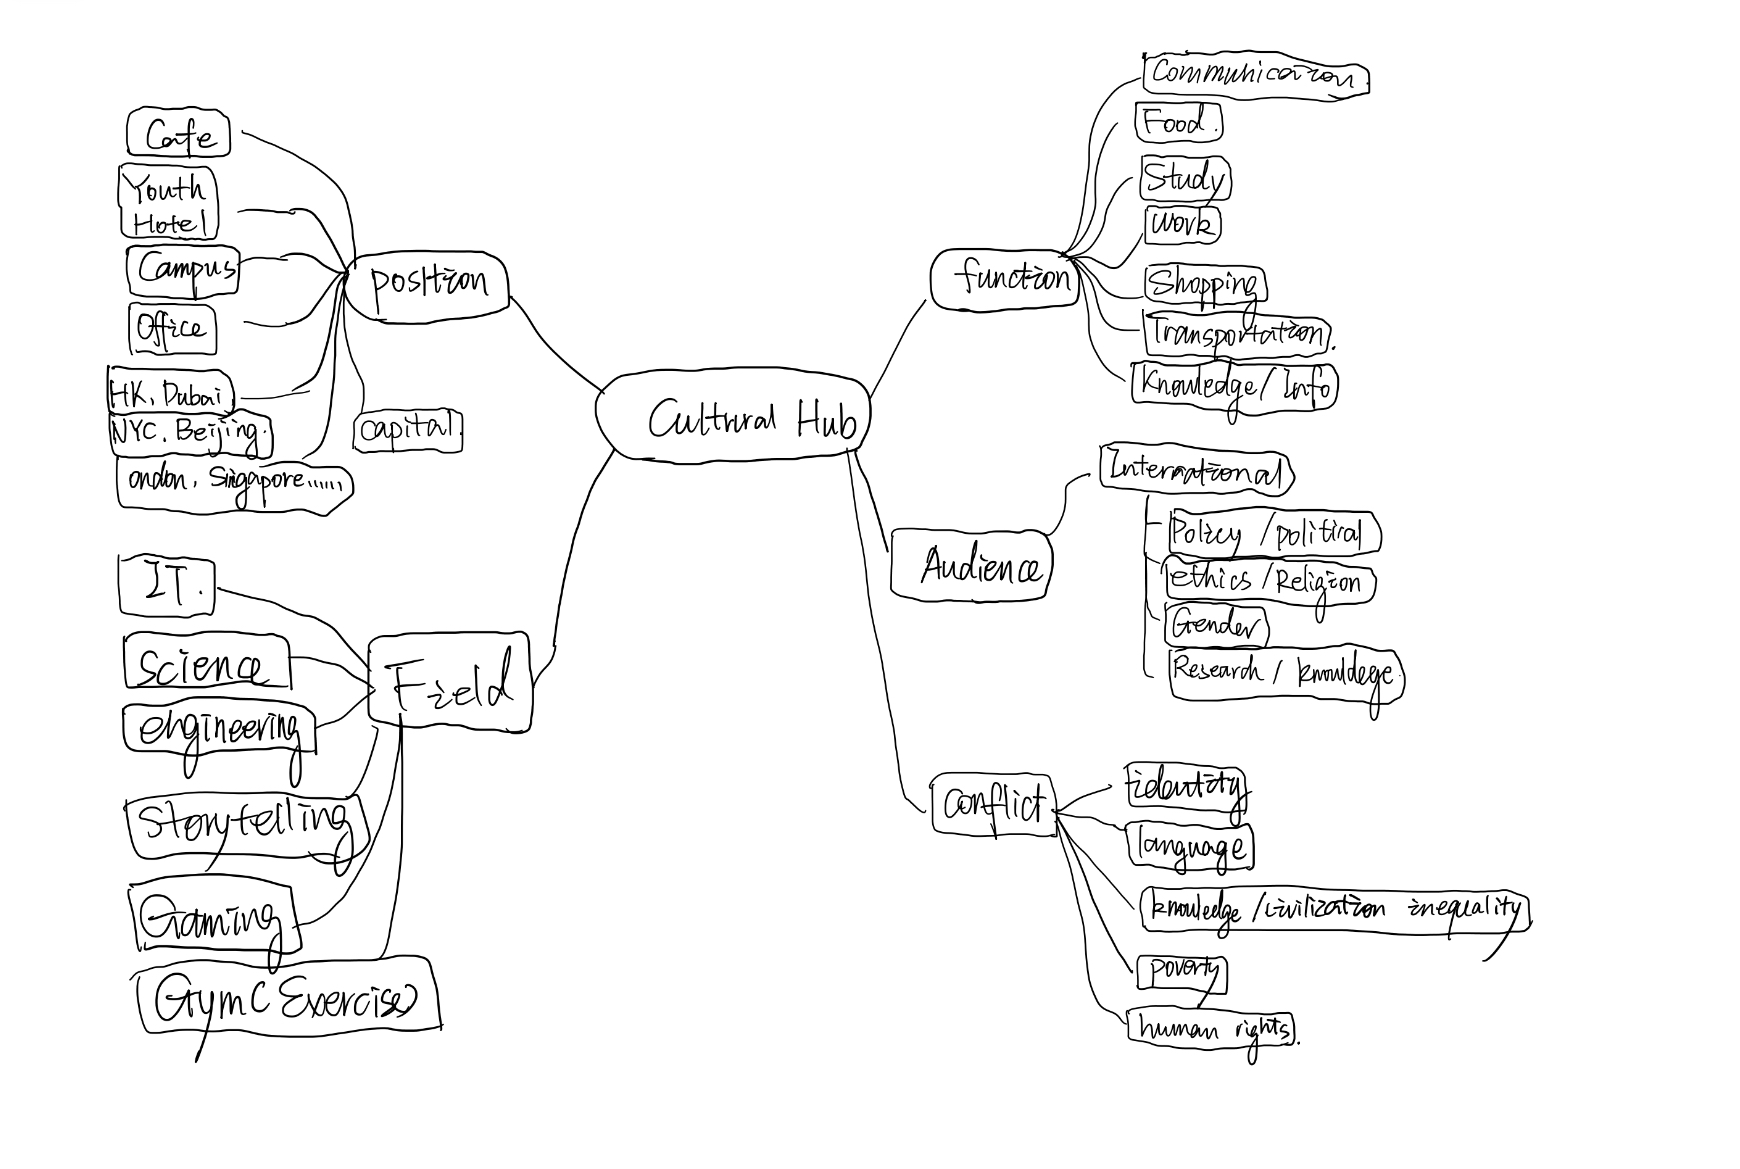 Cultural Hub
position
Cafe
Youth
Hotel
Campus
Office
HK, Dubai
NYC, Beijing.
ondon, Singapore......
capital.
Field
IT.
Science
engineering
Storytelling
Gaming
Gym(Exercise)
function
Communication
Food.
Study
Work
Shopping
Transportation.
Knowledge/Info
Audience
International
Policy/political
ethics/Religion
Gender
Research/knowldege
Conflict
identity
language
knowledge/civilization inequality
poverty
human rights.